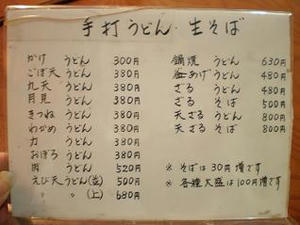 手打うどん・生そば
かけ うどん 300円
ごぼ天うどん 380円
丸天 うどん 380円
月見 うどん 380円
きつね うどん 380円
わかめ うどん 380円
力 うどん 380円
おぼろ うどん 380円
肉 うどん 520円
えび天うどん(並) 500円
〃 〃 (上) 680円
鍋焼 うどん 630円
釜あげうどん 480円
ざる うどん 480円
ざる そば 500円
天ざるうどん 800円
天ざるそば 800円
※ そばは30円増です
※ 各種大盛は100円増です